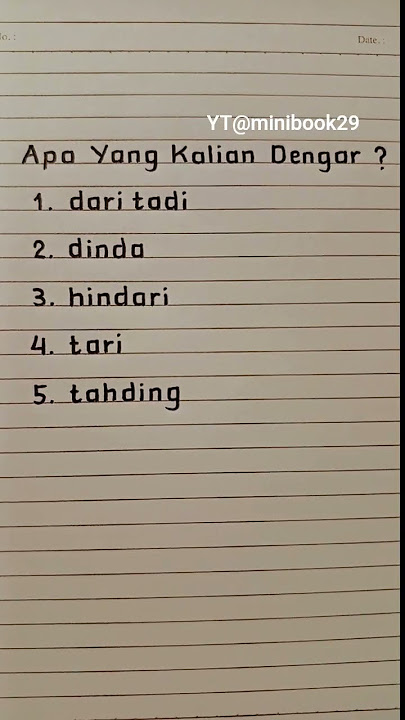 No. :
Date. :
YT@minibook29
Apa Yang Kalian Dengar ?
1. dari tadi
2. dinda
3. hindari
4. tari
5. tahding